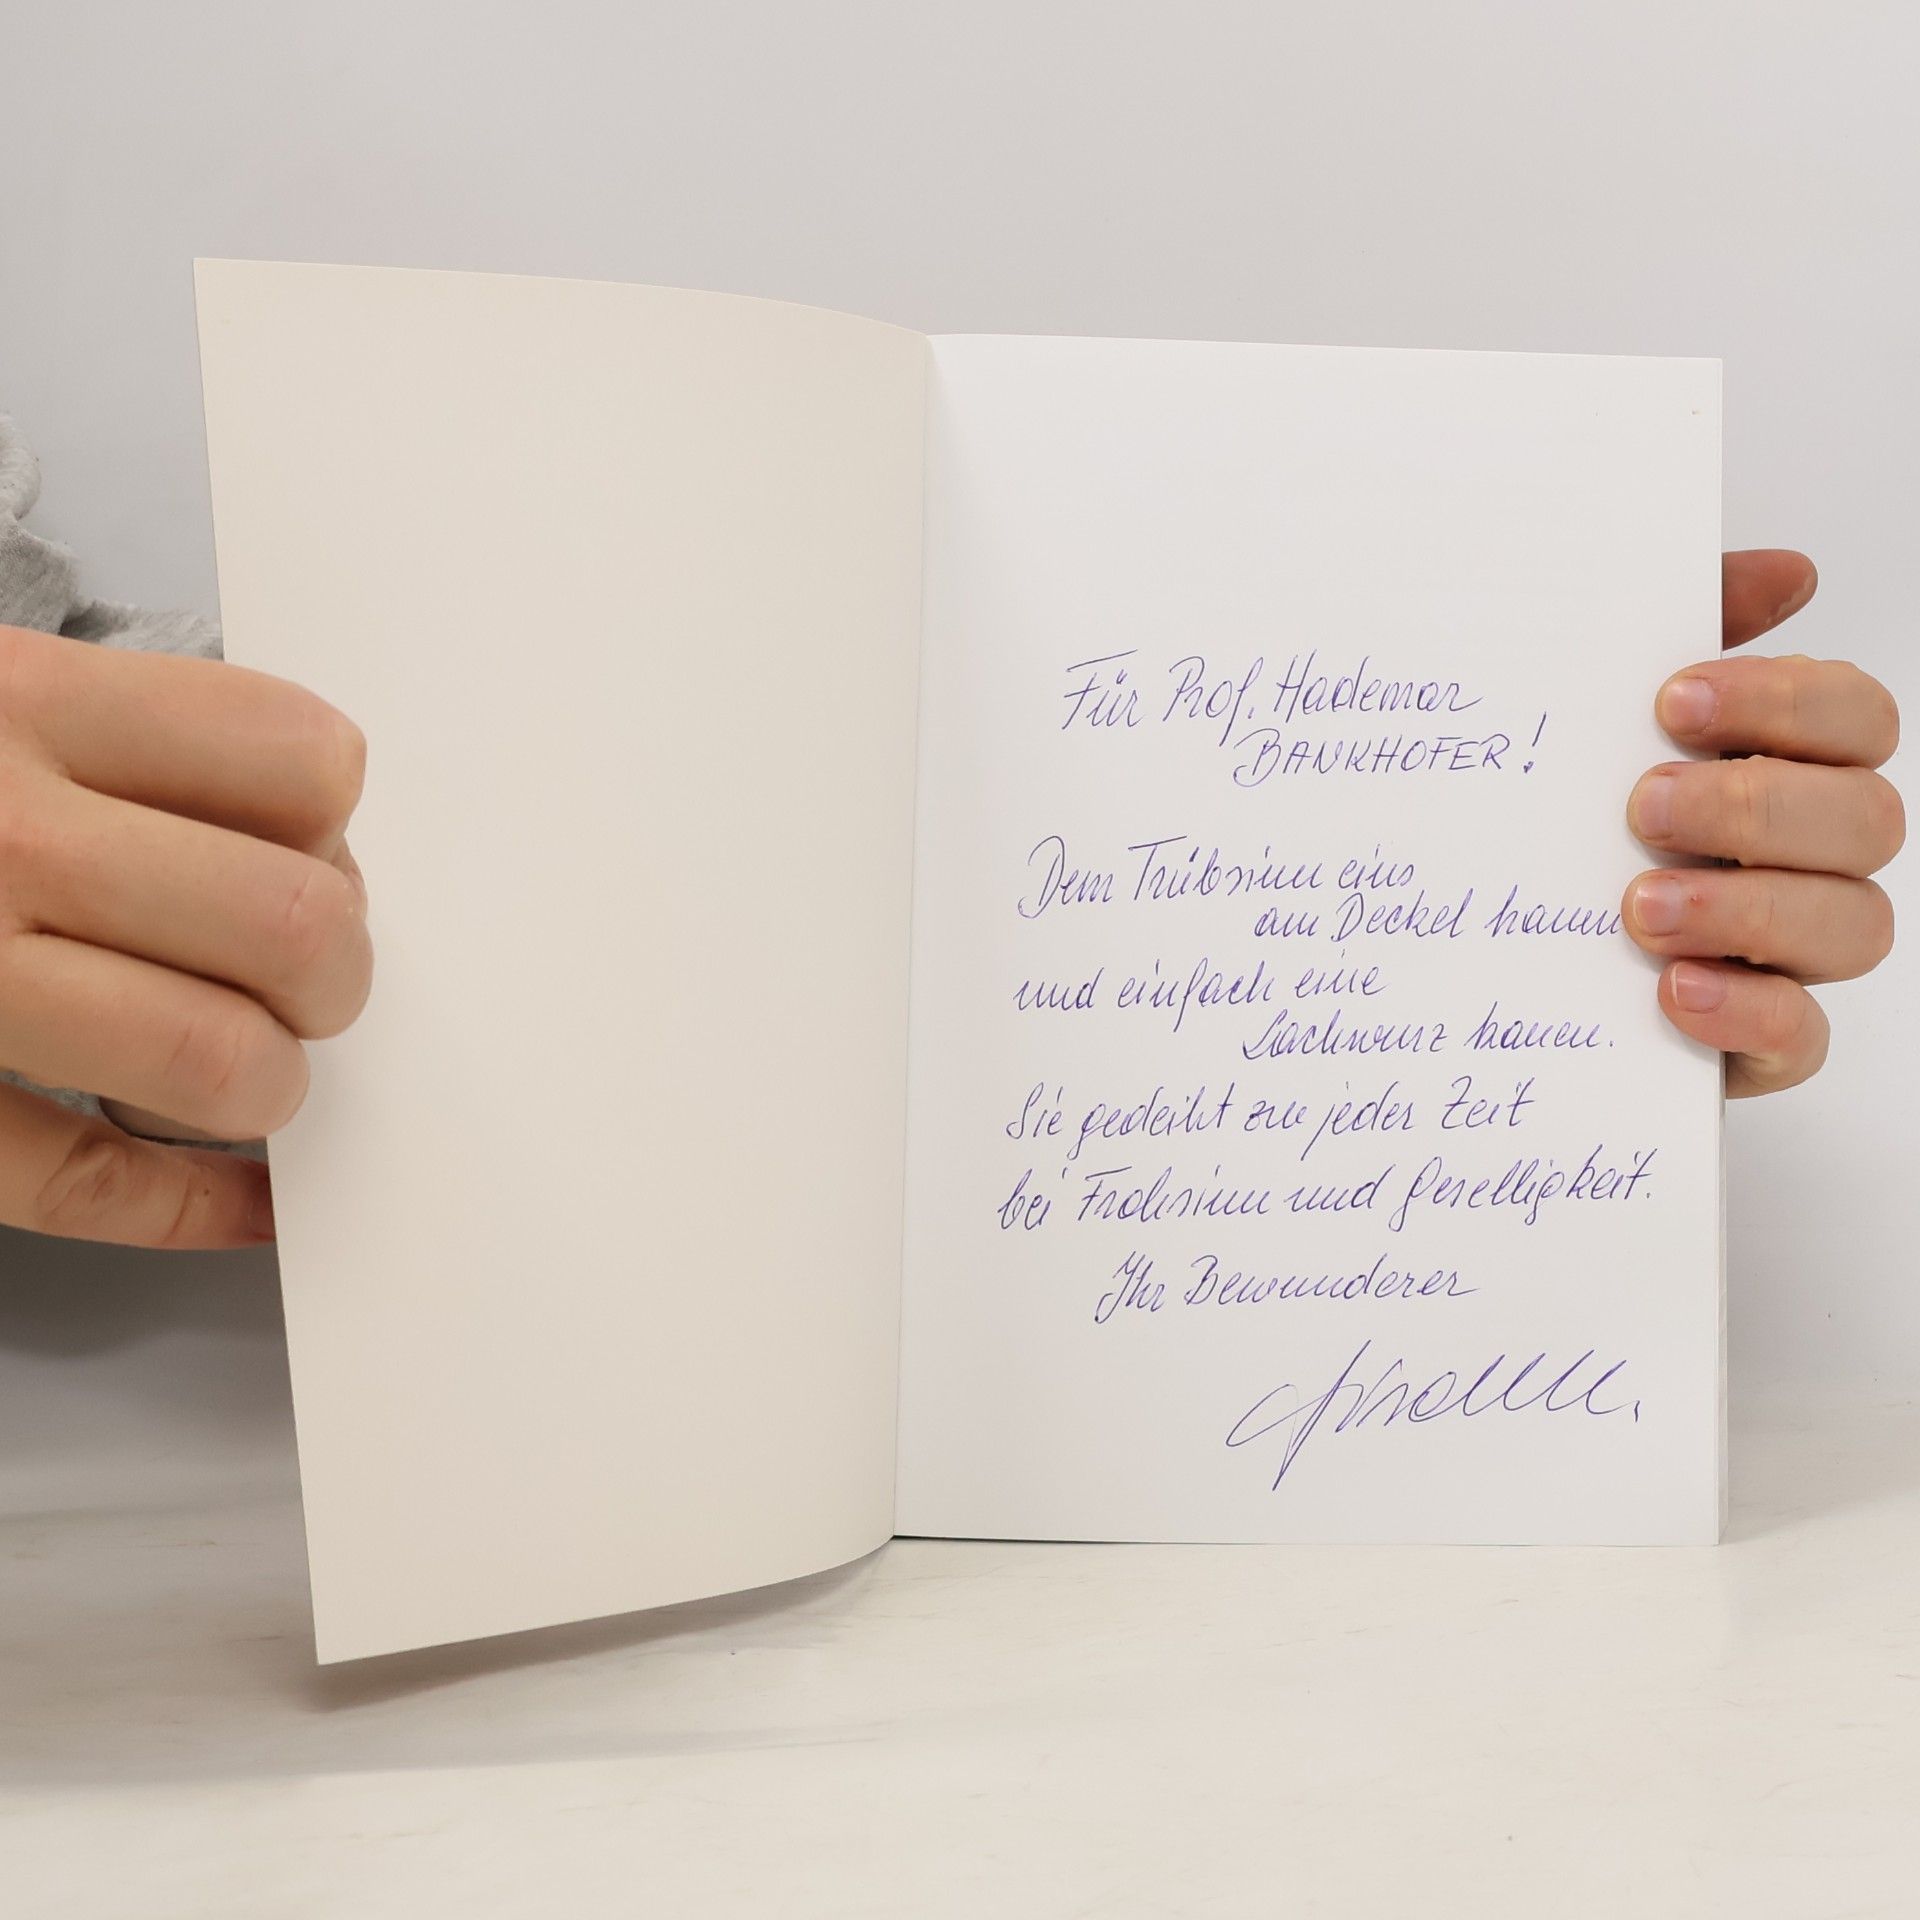 Für Prof. Hademar
BANKHOFER!
Dem Trübsinn eins
am Deckel hauen
und einfach eine
Lachwurz kauen.
Sie gedeiht zu jeder Zeit
bei Frohsinn und Geselligkeit.
Ihr Bewunderer